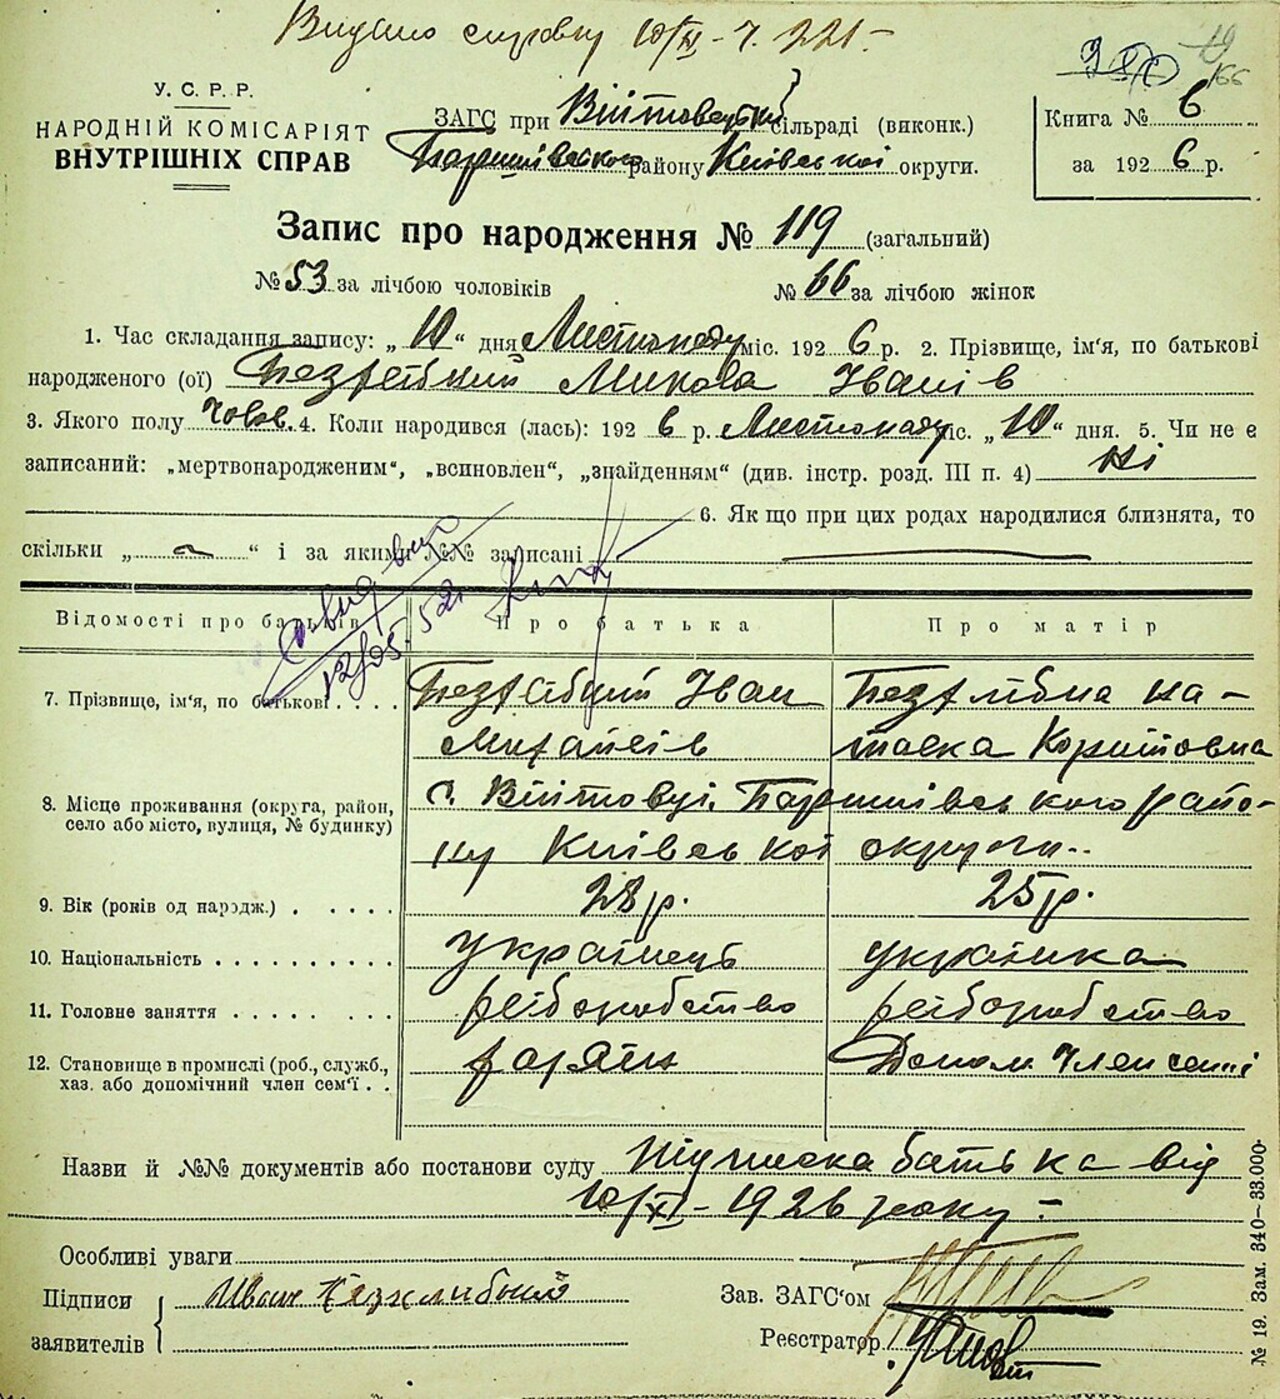 Видано справку 10/XI - Ч. 221.-
У. С. Р. Р.
НАРОДНІЙ КОМІСАРІЯТ
ВНУТРІШНІХ СПРАВ
ЗАГС при Війтовецькій сільраді (виконк.)
Баришівського району Київської округи.
Книга № 6
за 1926 р.
Запис про народження № 119 (загальний)
№ 53 за лічбою чоловіків № 66 за лічбою жінок
1. Час складання запису: „10“ дня Листопаду міс. 1926 р. 2. Прізвище, ім'я, по батькові
народженого (ої) Безхлібний Микола Іванів
3. Якого полу Чолов. 4. Коли народився (лась): 1926 р. Листопаду міс. „10“ дня. 5. Чи не є
записаний: „мертвонародженим“, „всиновлен“, „знайденням“ (див. інстр. розд. III п. 4) ні
6. Як що при цих родах народилися близнята, то
скільки „ “ і за якими №№ записані
Відомості про батьків Про батька Про матір
7. Прізвище, ім'я, по батькові Безхлібний Іван Безхлібна На-
Михайлів талка Коритовна
8. Місце проживання (округа, район, село або місто, вулиця, № будинку) с. Війтовці, Баришівського райо-
ну Київської округи..
9. Вік (років од народж.) 28 р. 25 р.
10. Національність Українець українка
11. Головне заняття хліборобство хліборобство
12. Становище в промислі (роб., служб., хаз. або допомічний член сем'ї хазяїн Допом. член семї
Назви й №№ документів або постанови суду Підписка батька від
10/XI - 1926 року -
Особливі уваги
Підписи заявителів Иван Безхлибний
Зав. ЗАГС'ом
Реєстратор
№ 19. Зам. 340—33.000